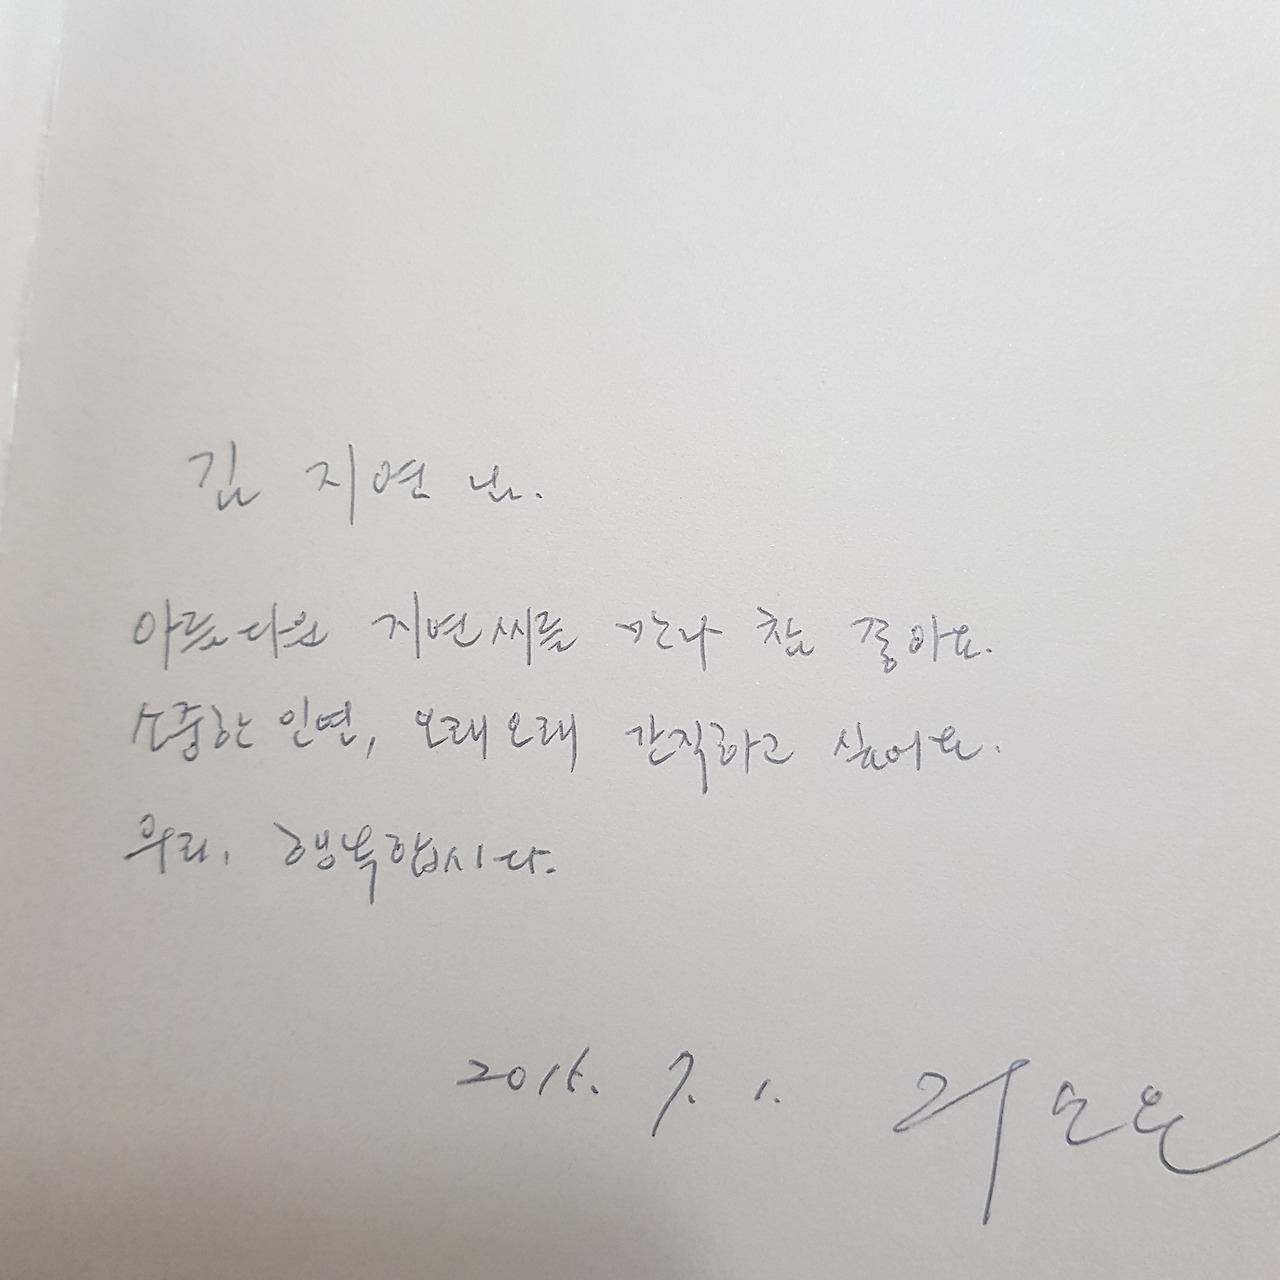 김 지연 님.
아름다운 지연씨를 만나 참 좋아요.
소중한 인연, 오래오래 간직하고 싶어요.
우리, 행복합시다.
2016. 7. 1.